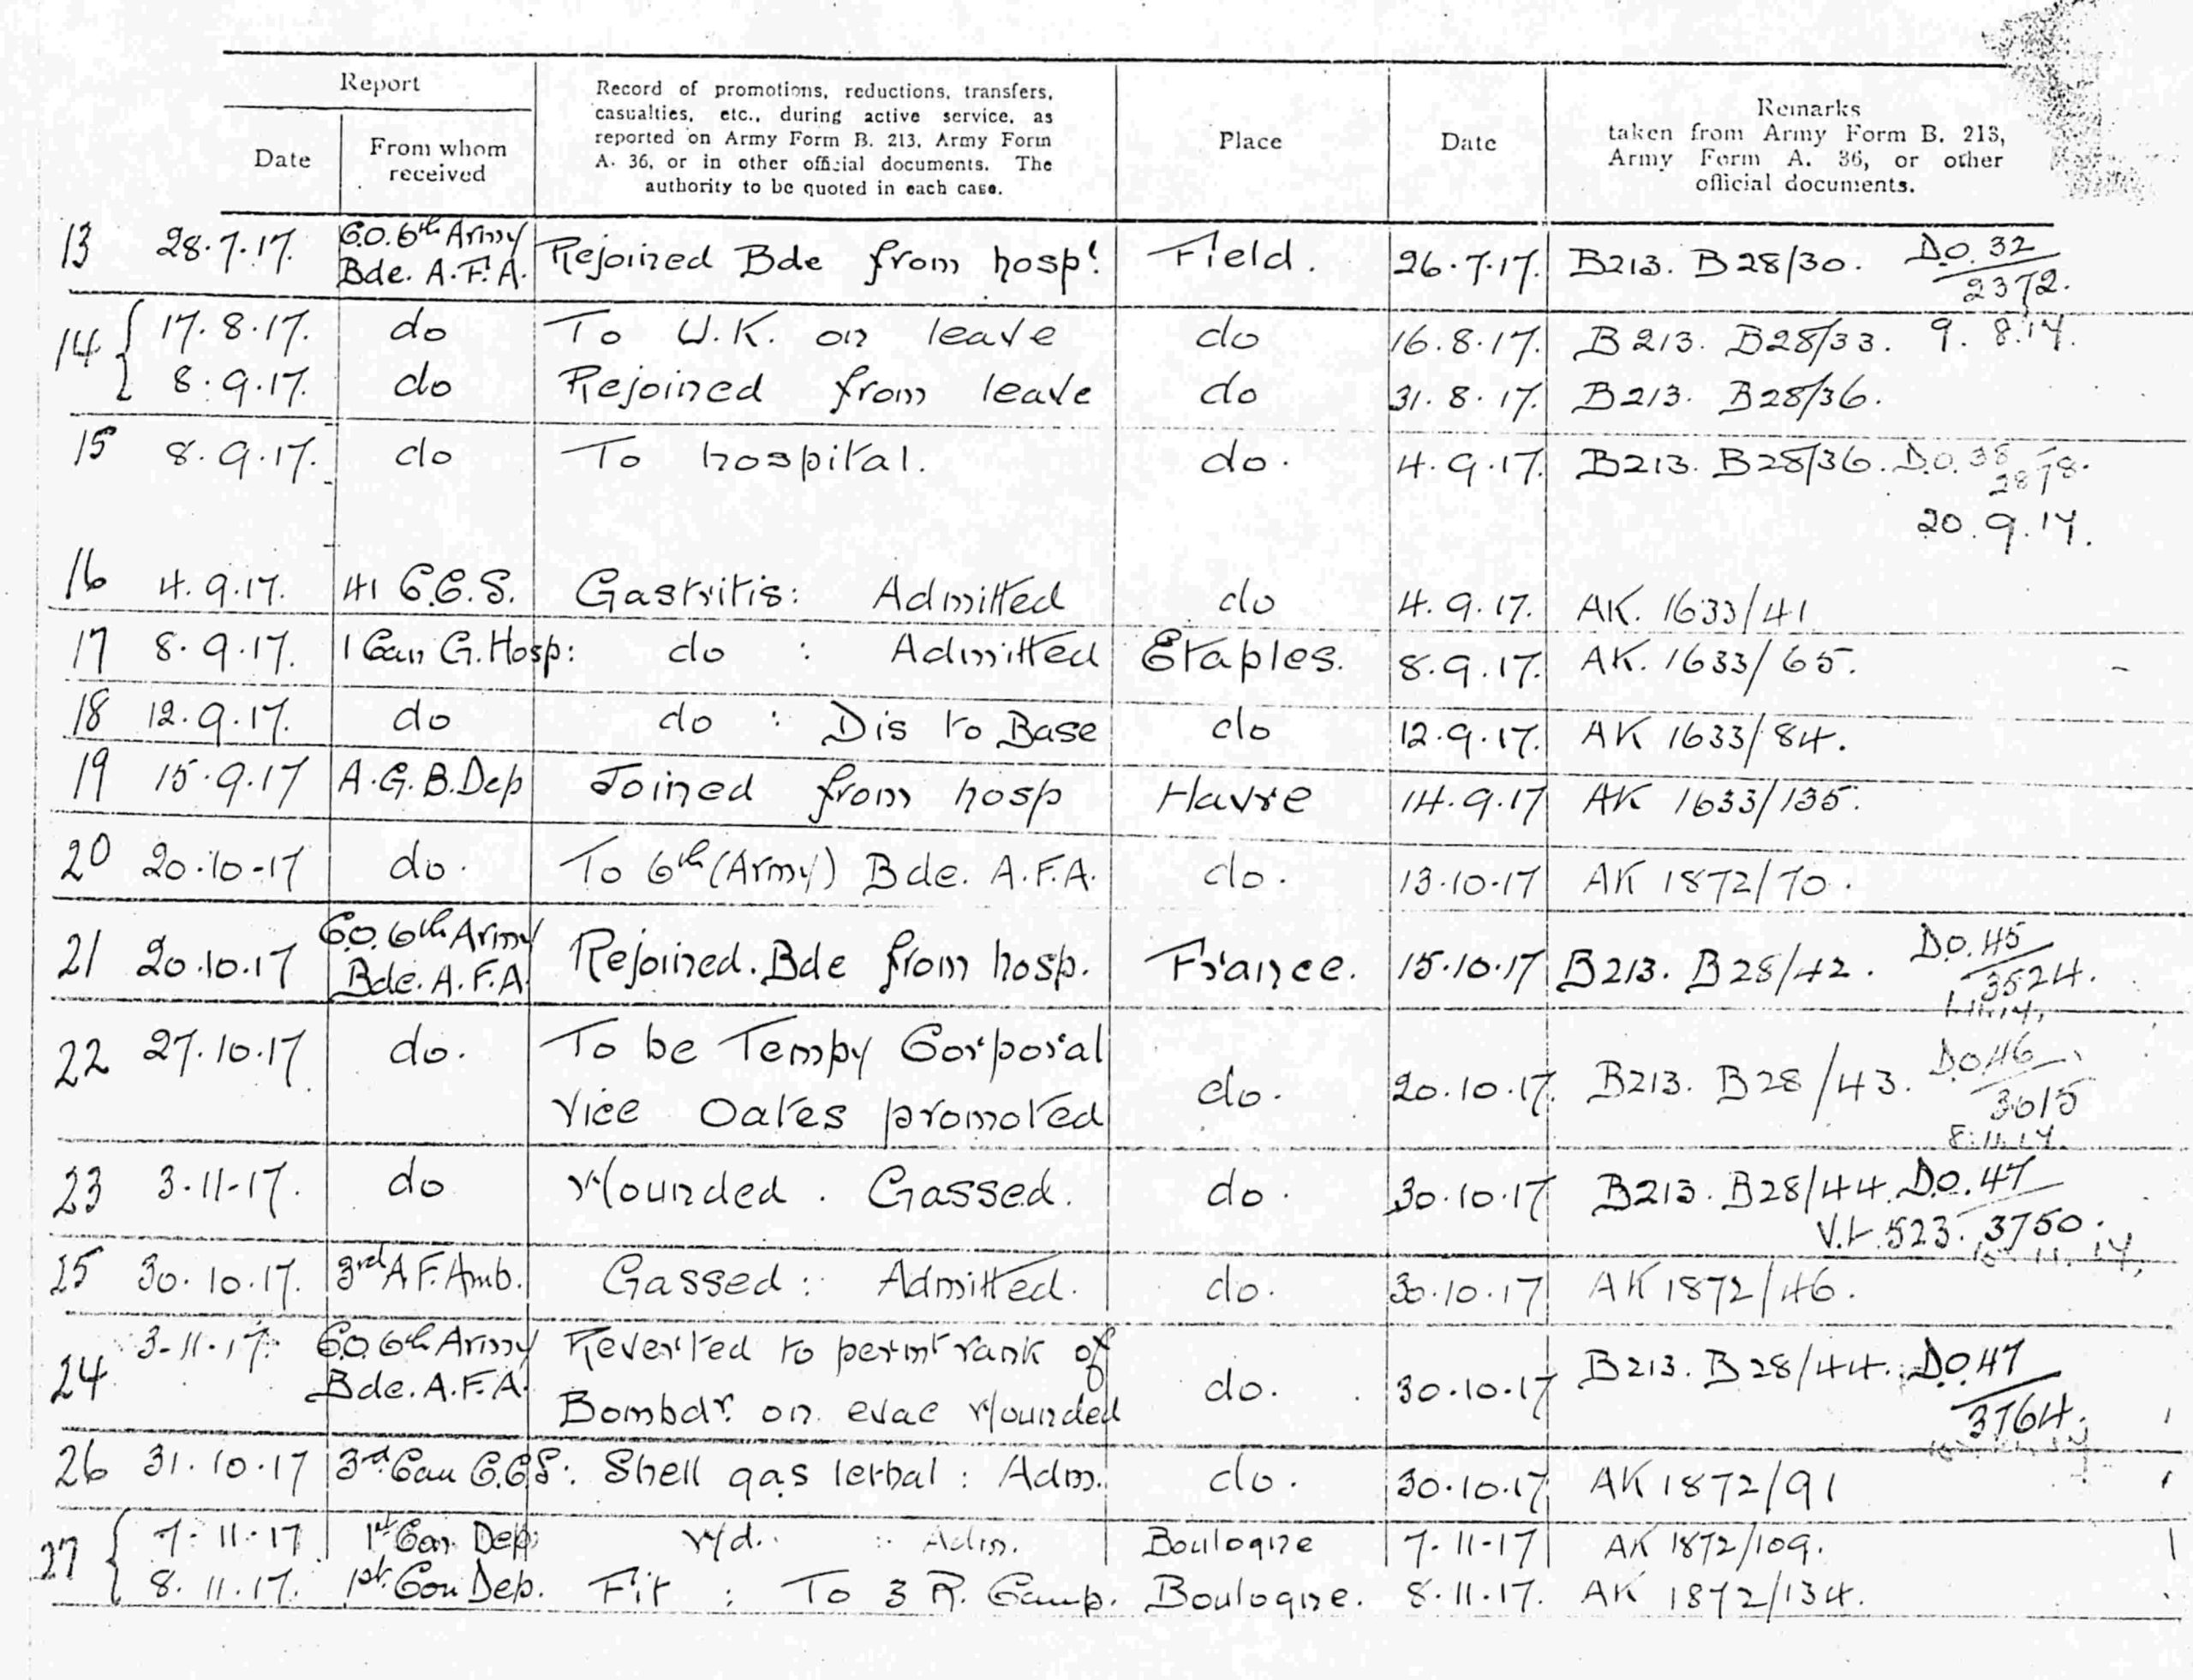 Report
Record of promotions, reductions, transfers,
casualties, etc., during active service, as
reported on Army Form B. 213, Army Form
A. 36, or in other official documents. The
authority to be quoted in each case.
Date
From whom
received
Place
Date
Remarks
taken from Army Form B. 213,
Army Form A. 36, or other
official documents.
13 28.7.17. C.O. 6th Army Bde. A.F.A. Rejoined Bde from hospl. Field. 26.7.17. B213. B28/30. D.O. 32
2372.
9. 8.17.
14 17.8.17. do To U.K. on leave do 16.8.17. B213. B28/33.
8.9.17. do Rejoined from leave do 31.8.17. B213. B28/36.
15 8.9.17. do To hospital. do. 4.9.17. B213. B28/36. D.O. 38
2878.
20.9.17.
16 4.9.17. 41 C.C.S. Gastritis: Admitted do 4.9.17. AK. 1633/41
17 8.9.17. 1 Can G. Hosp: do : Admitted Etaples. 8.9.17. AK. 1633/65.
18 12.9.17. do do : Dis to Base do 12.9.17. AK 1633/84.
19 15.9.17 A.G.B.Dep Joined from hosp Havre 14.9.17 AK 1633/135.
20 20.10-17 do. To 6th (Army) Bde. A.F.A. do. 13.10.17 AK 1872/70.
21 20.10.17 C.O. 6th Army Bde. A.F.A. Rejoined. Bde from hosp. France. 15.10.17 B213. B28/42. D.O. 45
3524.
1.11.17.
22 27.10.17 do. To be Tempy Corporal
vice Oates promoted do. 20.10.17. B213. B28/43. D.O. 46
3615
8.11.17.
23 3-11-17. do Wounded. Gassed. do. 30.10.17 B213. B28/44. D.O. 47
V.L. 523. 3750.
25 30.10.17. 3rd A F. Amb. Gassed: Admitted. do. 30.10.17 AK 1872/46.
24 3-11-17. C.O. 6th Army Bde. A.F.A. Reverted to permt rank of
Bombdr. on evac wounded do. 30.10.17 B213. B28/44. D.O. 47
3764.
26 31.10.17 3rd Can C.C.S: Shell gas lethal: Adm. do. 30.10.17. AK 1872/91
27 7-11-17 1st Con Dep: W/d. : Adm. Boulogne 7-11-17 AK 1872/109.
8.11.17. 1st. Con Dep. Fit : To 3 R. Camp. Boulogne. 8.11.17. AK 1872/134.